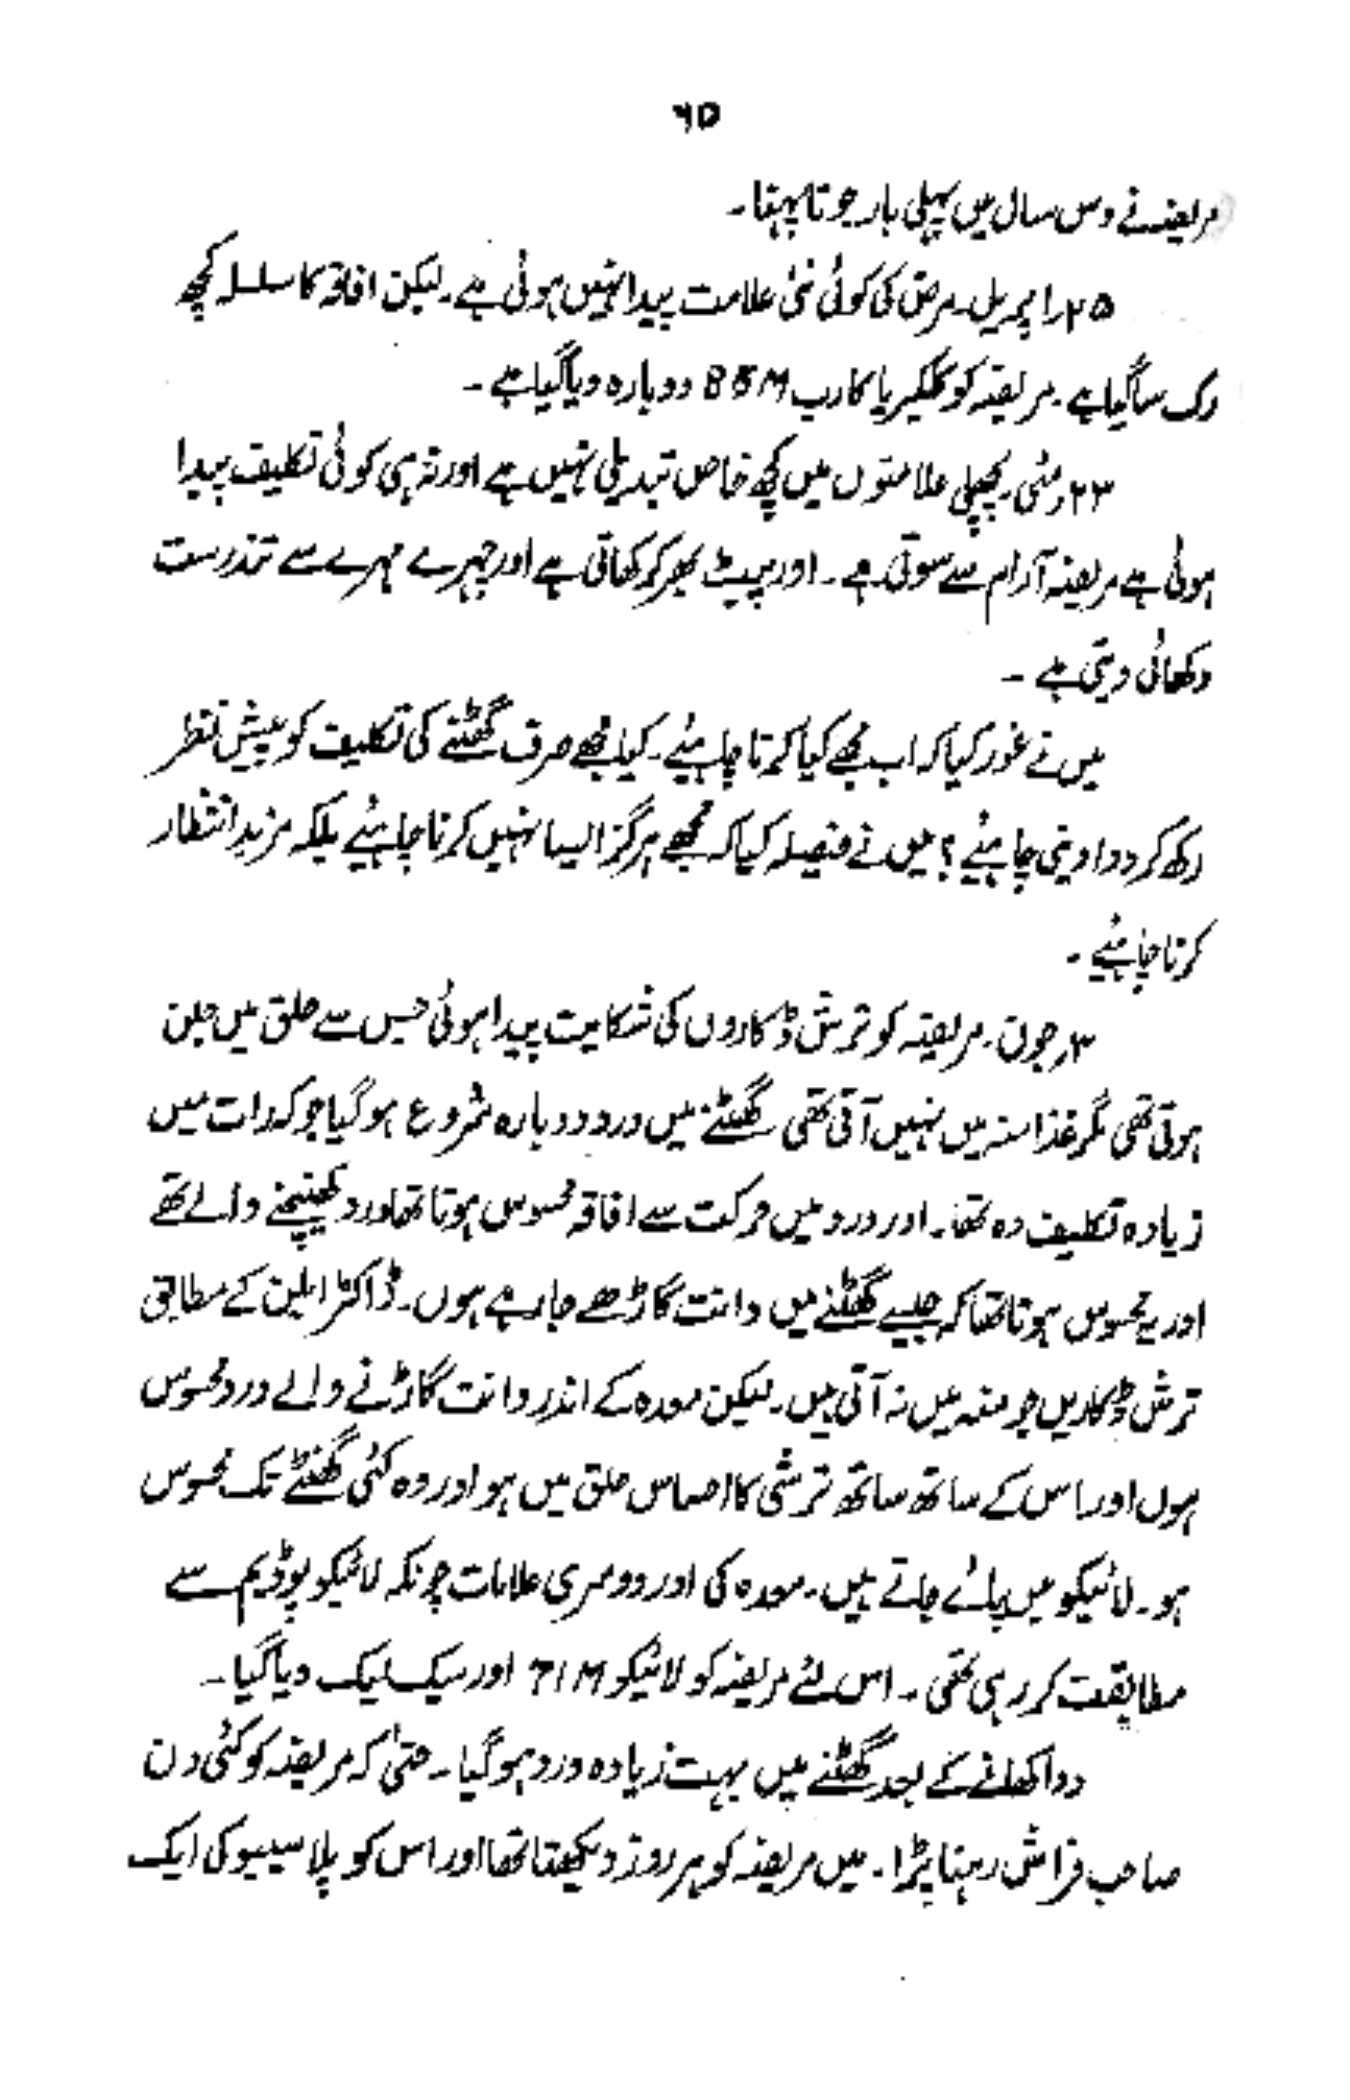 ۶۵
مریضہ نے دس سال میں پہلی بار جوتا پہنا۔
۲۵؍اپریل۔ مرض کی کوئی نئی علامت پیدا نہیں ہوئی ہے۔ لیکن افاقہ کا سلسلہ کچھ
رک سا گیا ہے۔ مریضہ کو کلکیریا کارب 85M دوبارہ دیا گیا ہے۔
۲۳؍مئی۔ پچھلی علامتوں میں کچھ خاص تبدیلی نہیں ہے اور نہ ہی کوئی تکلیف پیدا
ہوئی ہے مریضہ آرام سے سوتی ہے۔ اور پیٹ بھر کر کھاتی ہے اور چہرے مہرے سے تندرست
دکھائی دیتی ہے۔
میں نے غور کیا کہ اب مجھے کیا کرنا چاہئیے۔ کیا مجھے صرف گھٹنے کی تکلیف کو پیش نظر
رکھ کر دوا دینی چاہئیے؟ میں نے فیصلہ کیا کہ مجھے ہرگز ایسا نہیں کرنا چاہئیے بلکہ مزید انتظار
کرنا چاہئیے۔
۳؍جون۔ مریضہ کو ترش ڈکاروں کی شکایت پیدا ہوئی جس سے حلق میں جلن
ہوتی تھی مگر غذا منہ میں نہیں آتی تھی گھٹنے میں درد دوبارہ شروع ہوگیا جو کہ رات میں
زیادہ تکلیف دہ تھا۔ اور درد میں حرکت سے افاقہ محسوس ہوتا تھا درد کھینچنے والے تھے
اور یہ محسوس ہوتا تھا کہ جیسے گھٹنے میں دانت گاڑھے جا رہے ہوں۔ ڈاکٹر ایلین کے مطابق
ترش ڈکاریں جو منہ میں نہ آتی ہیں۔ لیکن معدہ کے اندر دانت گاڑنے والے درد محسوس
ہوں اور اس کے ساتھ ساتھ ترشی کا احساس حلق میں ہو اور وہ کئی گھنٹے تک محسوس
ہو۔ لائیکو میں پائے جاتے ہیں۔ معدہ کی اور دوسری علامات چونکہ لائیکو پوڈیم سے
مطابقت کر رہی تھی۔ اس لئے مریضہ کو لائیکو 71M اور سیک لیک دیا گیا۔
دوا کھانے کے بعد گھٹنے میں بہت زیادہ درد ہوگیا۔ حتیٰ کہ مریضہ کو کئی دن
صاحب فراش رہنا پڑا۔ میں مریضہ کو ہر روز دیکھتا تھا اور اس کو پلاسیبو کی ایک